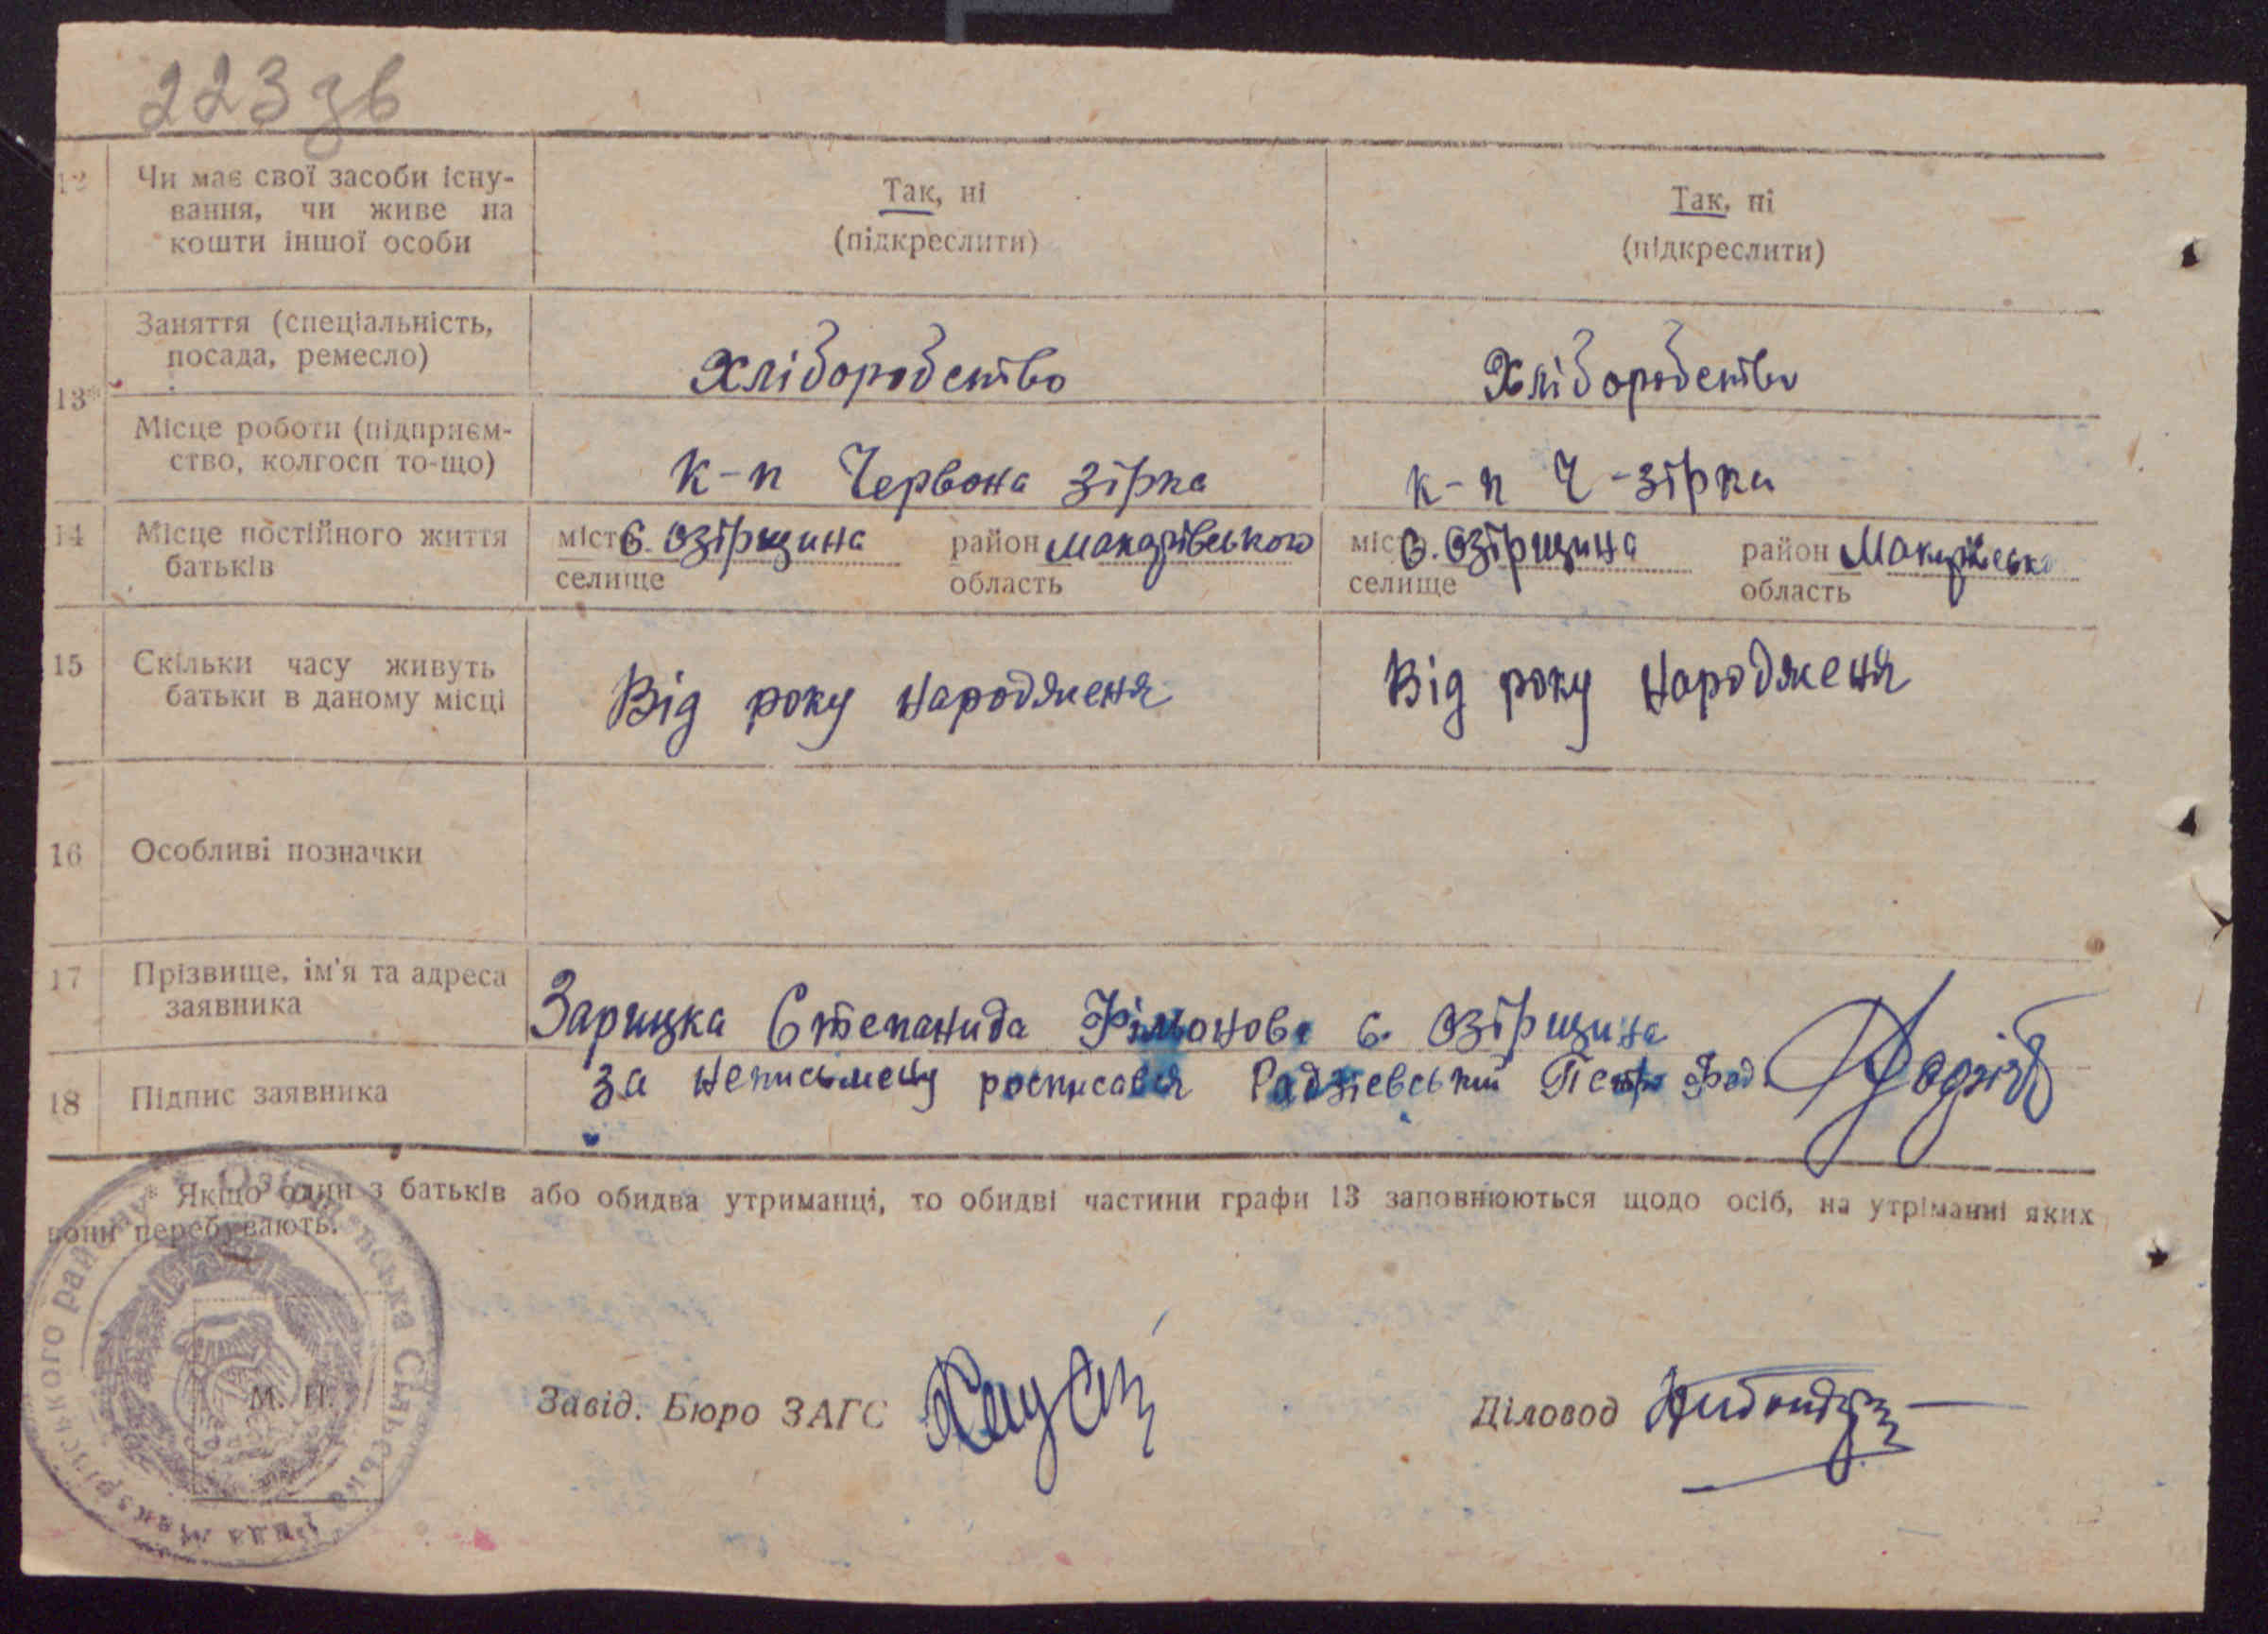 223 зв
12 Чи має свої засоби існу-
вання, чи живе на
кошти іншої особи
Так, ні
(підкреслити)
Так, ні
(підкреслити)
13*
Заняття (спеціальність,
посада, ремесло)
Хлібородство
Хлібородство
Місце роботи (підприєм-
ство, колгосп то-що)
к-п Червона зірка
к-п Ч-зірка
14 Місце постійного життя
батьків
місто с. Озірщина район Макарівського
селище область
місто с. Озірщина район Макарівсько
селище область
15 Скільки часу живуть
батьки в даному місці
Від року народженя
Від року народженя
16 Особливі позначки
17 Прізвище, ім'я та адреса
заявника
Зарицка Степанида Фільонова с. Озірщина
18 Підпис заявника
за неписьмену росписався Радзієвський Петро Фед.
* Якщо один з батьків або обидва утриманці, то обидві частини графи 13 заповнюються щодо осіб, на утріманні яких
вони перебувають.
М. П.
Завід. Бюро ЗАГС
Діловод